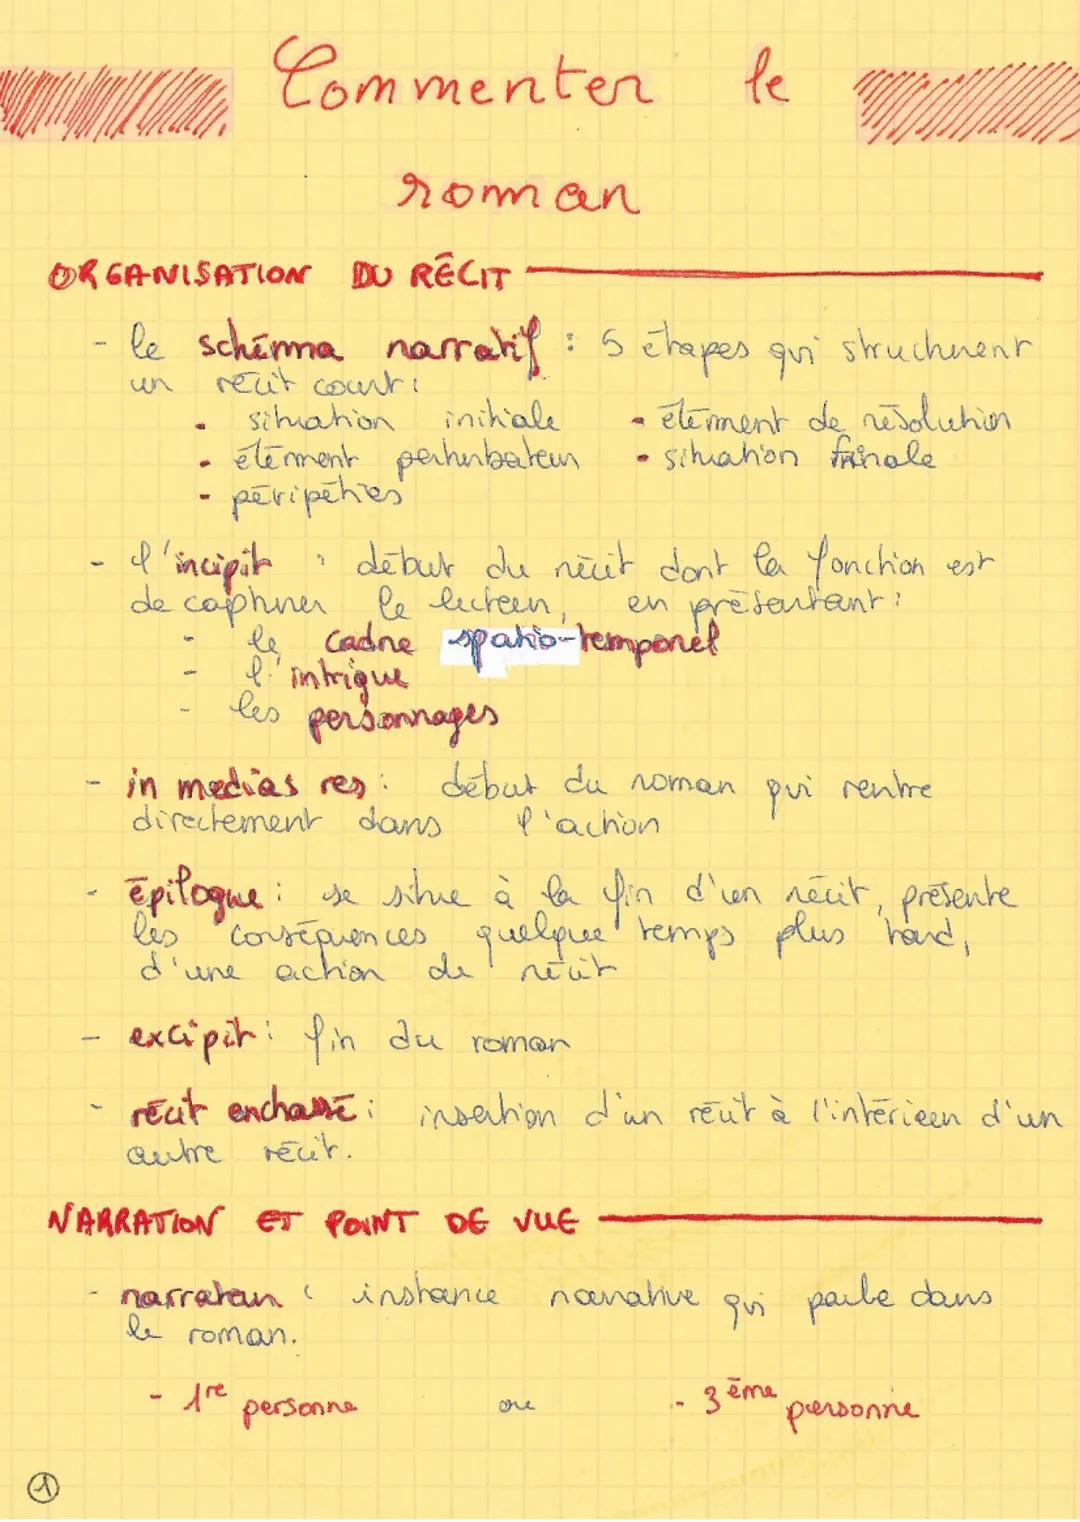 Commenter le
roman
ORGANISATION DU RÉCIT
- le schéma narratif : 5 étapes qui structurent
un récit court :
• situation initiale • élément de résolution
• élément perturbateur • situation finale
• péripéties
- l'incipit : début du récit dont la fonction est
de capturer le lecteur, en présentant :
- le cadre spatio-temporel
- l'intrigue
- les personnages
- in medias res : début du roman qui rentre
directement dans l'action
- épilogue : se situe à la fin d'un récit, présente
les conséquences quelque temps plus tard,
d'une action de récit
- excipit : fin du roman
- récit enchassé : insertion d'un récit à l'intérieur d'un
autre récit.
NARRATION ET POINT DE VUE
- narrateur : instance narrative qui parle dans
le roman.
- 1re personne ou - 3ème personne
1